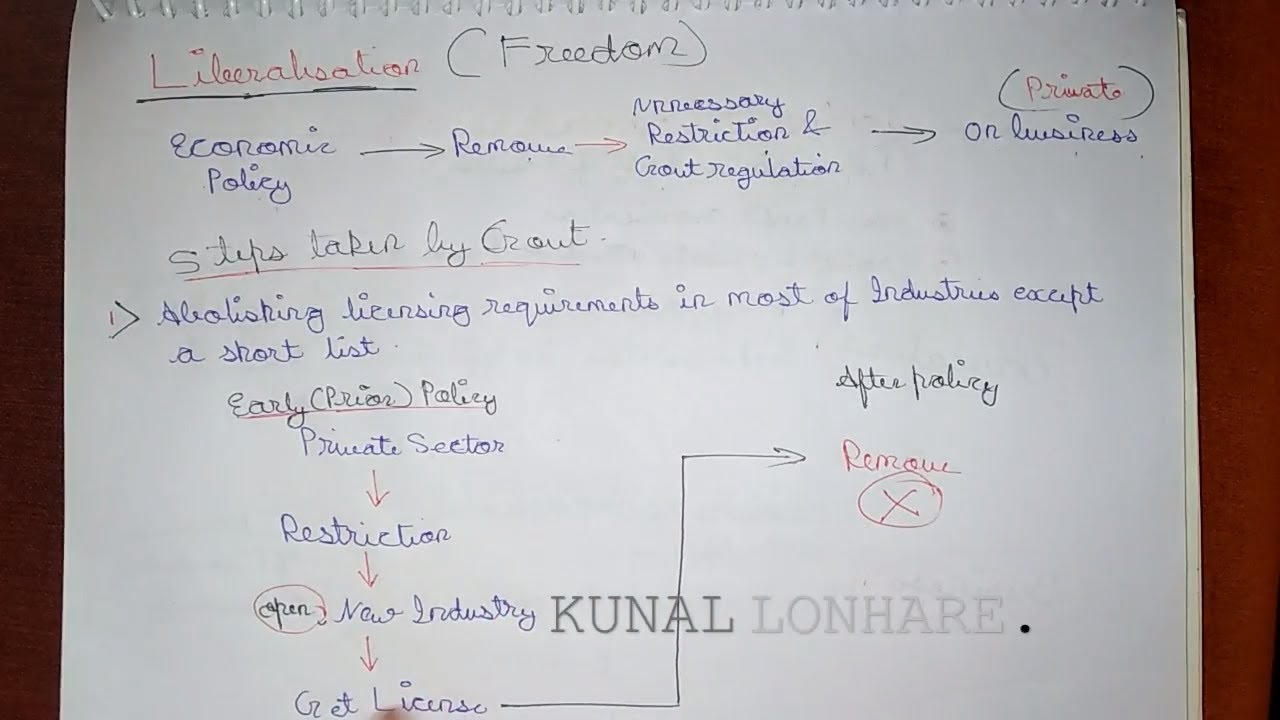 Liberalisation (Freedom)
Economic Policy → Remove → Unnecessary Restriction & Govt regulation → (Private) on business
Steps taken by Govt.
1> Abolishing licensing requirements in most of Industries except
a short list.
Early (Prior) Policy
After policy
Private Sector
Remove
X
Restriction
open New Industry
KUNAL LONHARE .
Get License